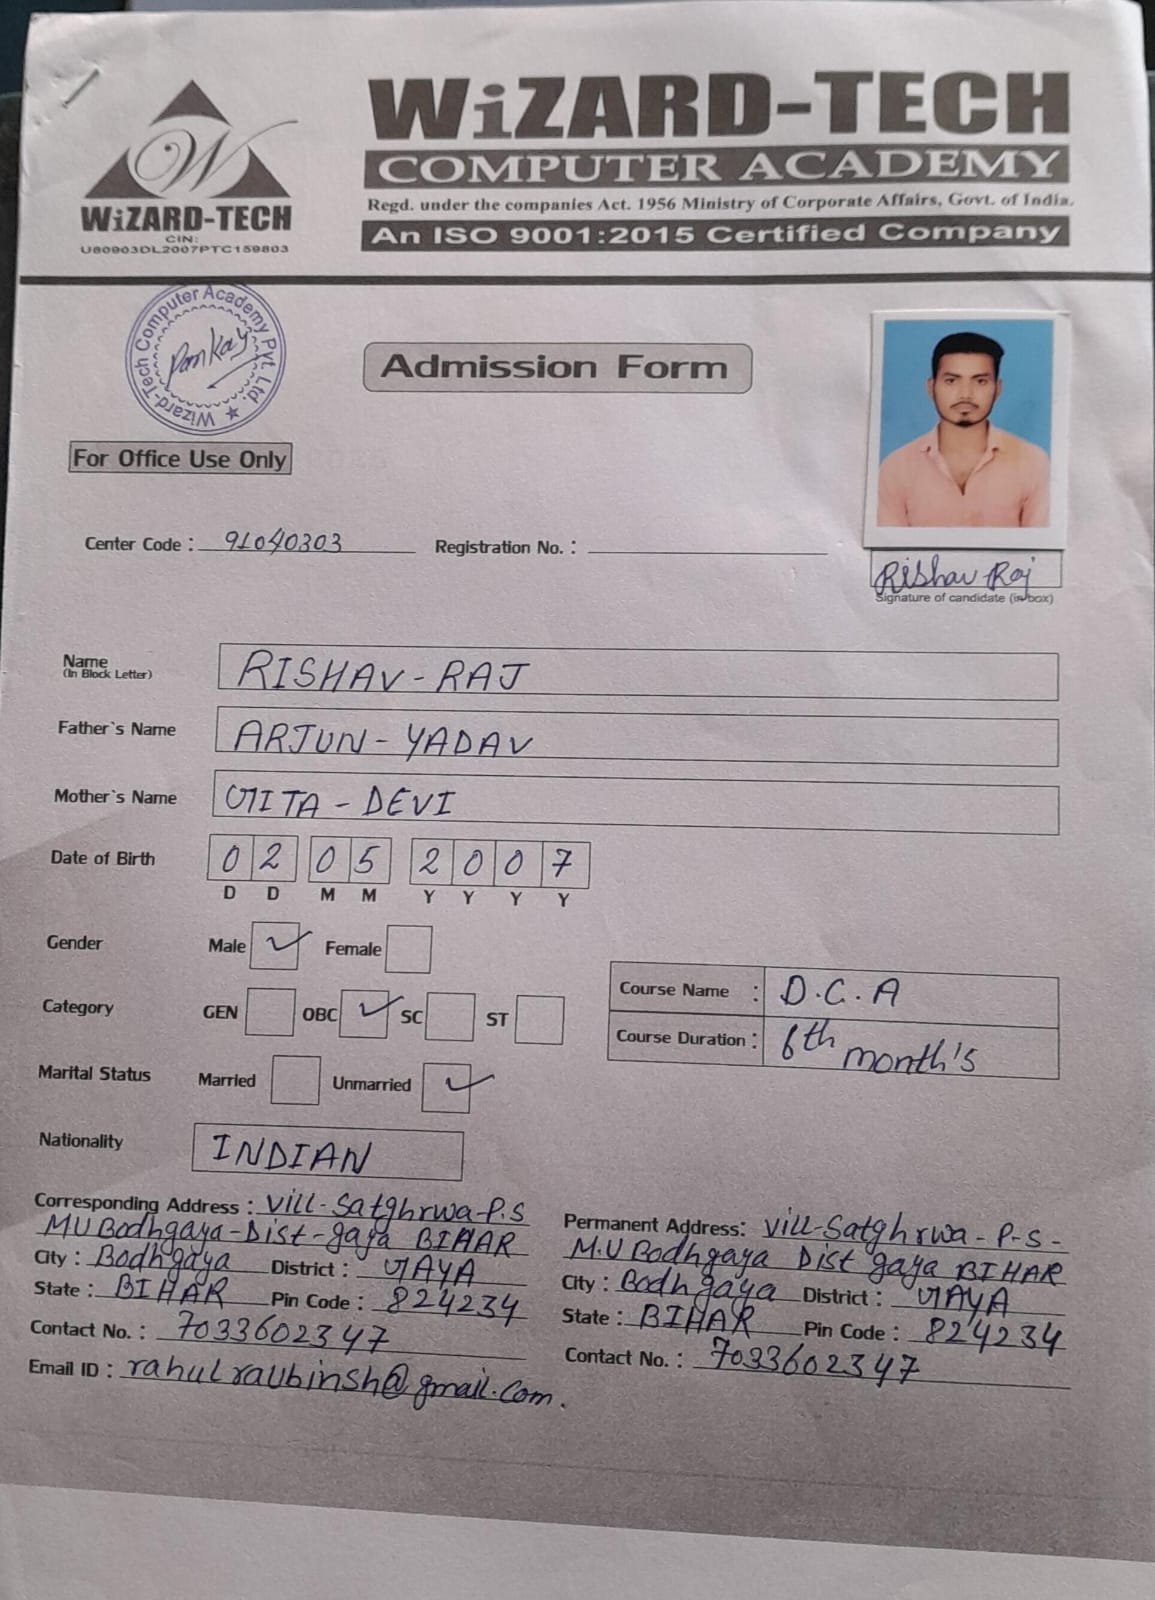 WiZARD-TECH
COMPUTER ACADEMY
Regd. under the companies Act. 1956 Ministry of Corporate Affairs, Govt. of India.
An ISO 9001:2015 Certified Company
W
WiZARD-TECH
CIN:
U80903DL2007PTC159803
Wizard-Tech Computer Academy Pvt. Ltd. ★
Pankaj
Admission Form
For Office Use Only
Center Code : 91040303 Registration No. :
Rishav Raj
Signature of candidate (in box)
Name RISHAV-RAJ
(In Block Letter)
Father`s Name ARJUN-YADAV
Mother`s Name GITA-DEVI
Date of Birth 02 05 2007
D D M M Y Y Y Y
Gender Male ✓ Female
Category GEN OBC ✓ SC ST
Course Name : D.C.A
Course Duration : 6th month's
Marital Status Married Unmarried ✓
Nationality INDIAN
Corresponding Address : Vill-Satghrwa-P.S
MU Bodhgaya-Dist-gaya BIHAR
City : Bodhgaya District : GAYA
State : BIHAR Pin Code : 824234
Contact No. : 7033602347
Email ID : rahulraubinsh@gmail.com.
Permanent Address: Vill-Satghrwa-P-S-
M.U Bodhgaya Dist gaya BIHAR
City : Bodhgaya District : GAYA
State : BIHAR Pin Code : 824234
Contact No. : 7033602347